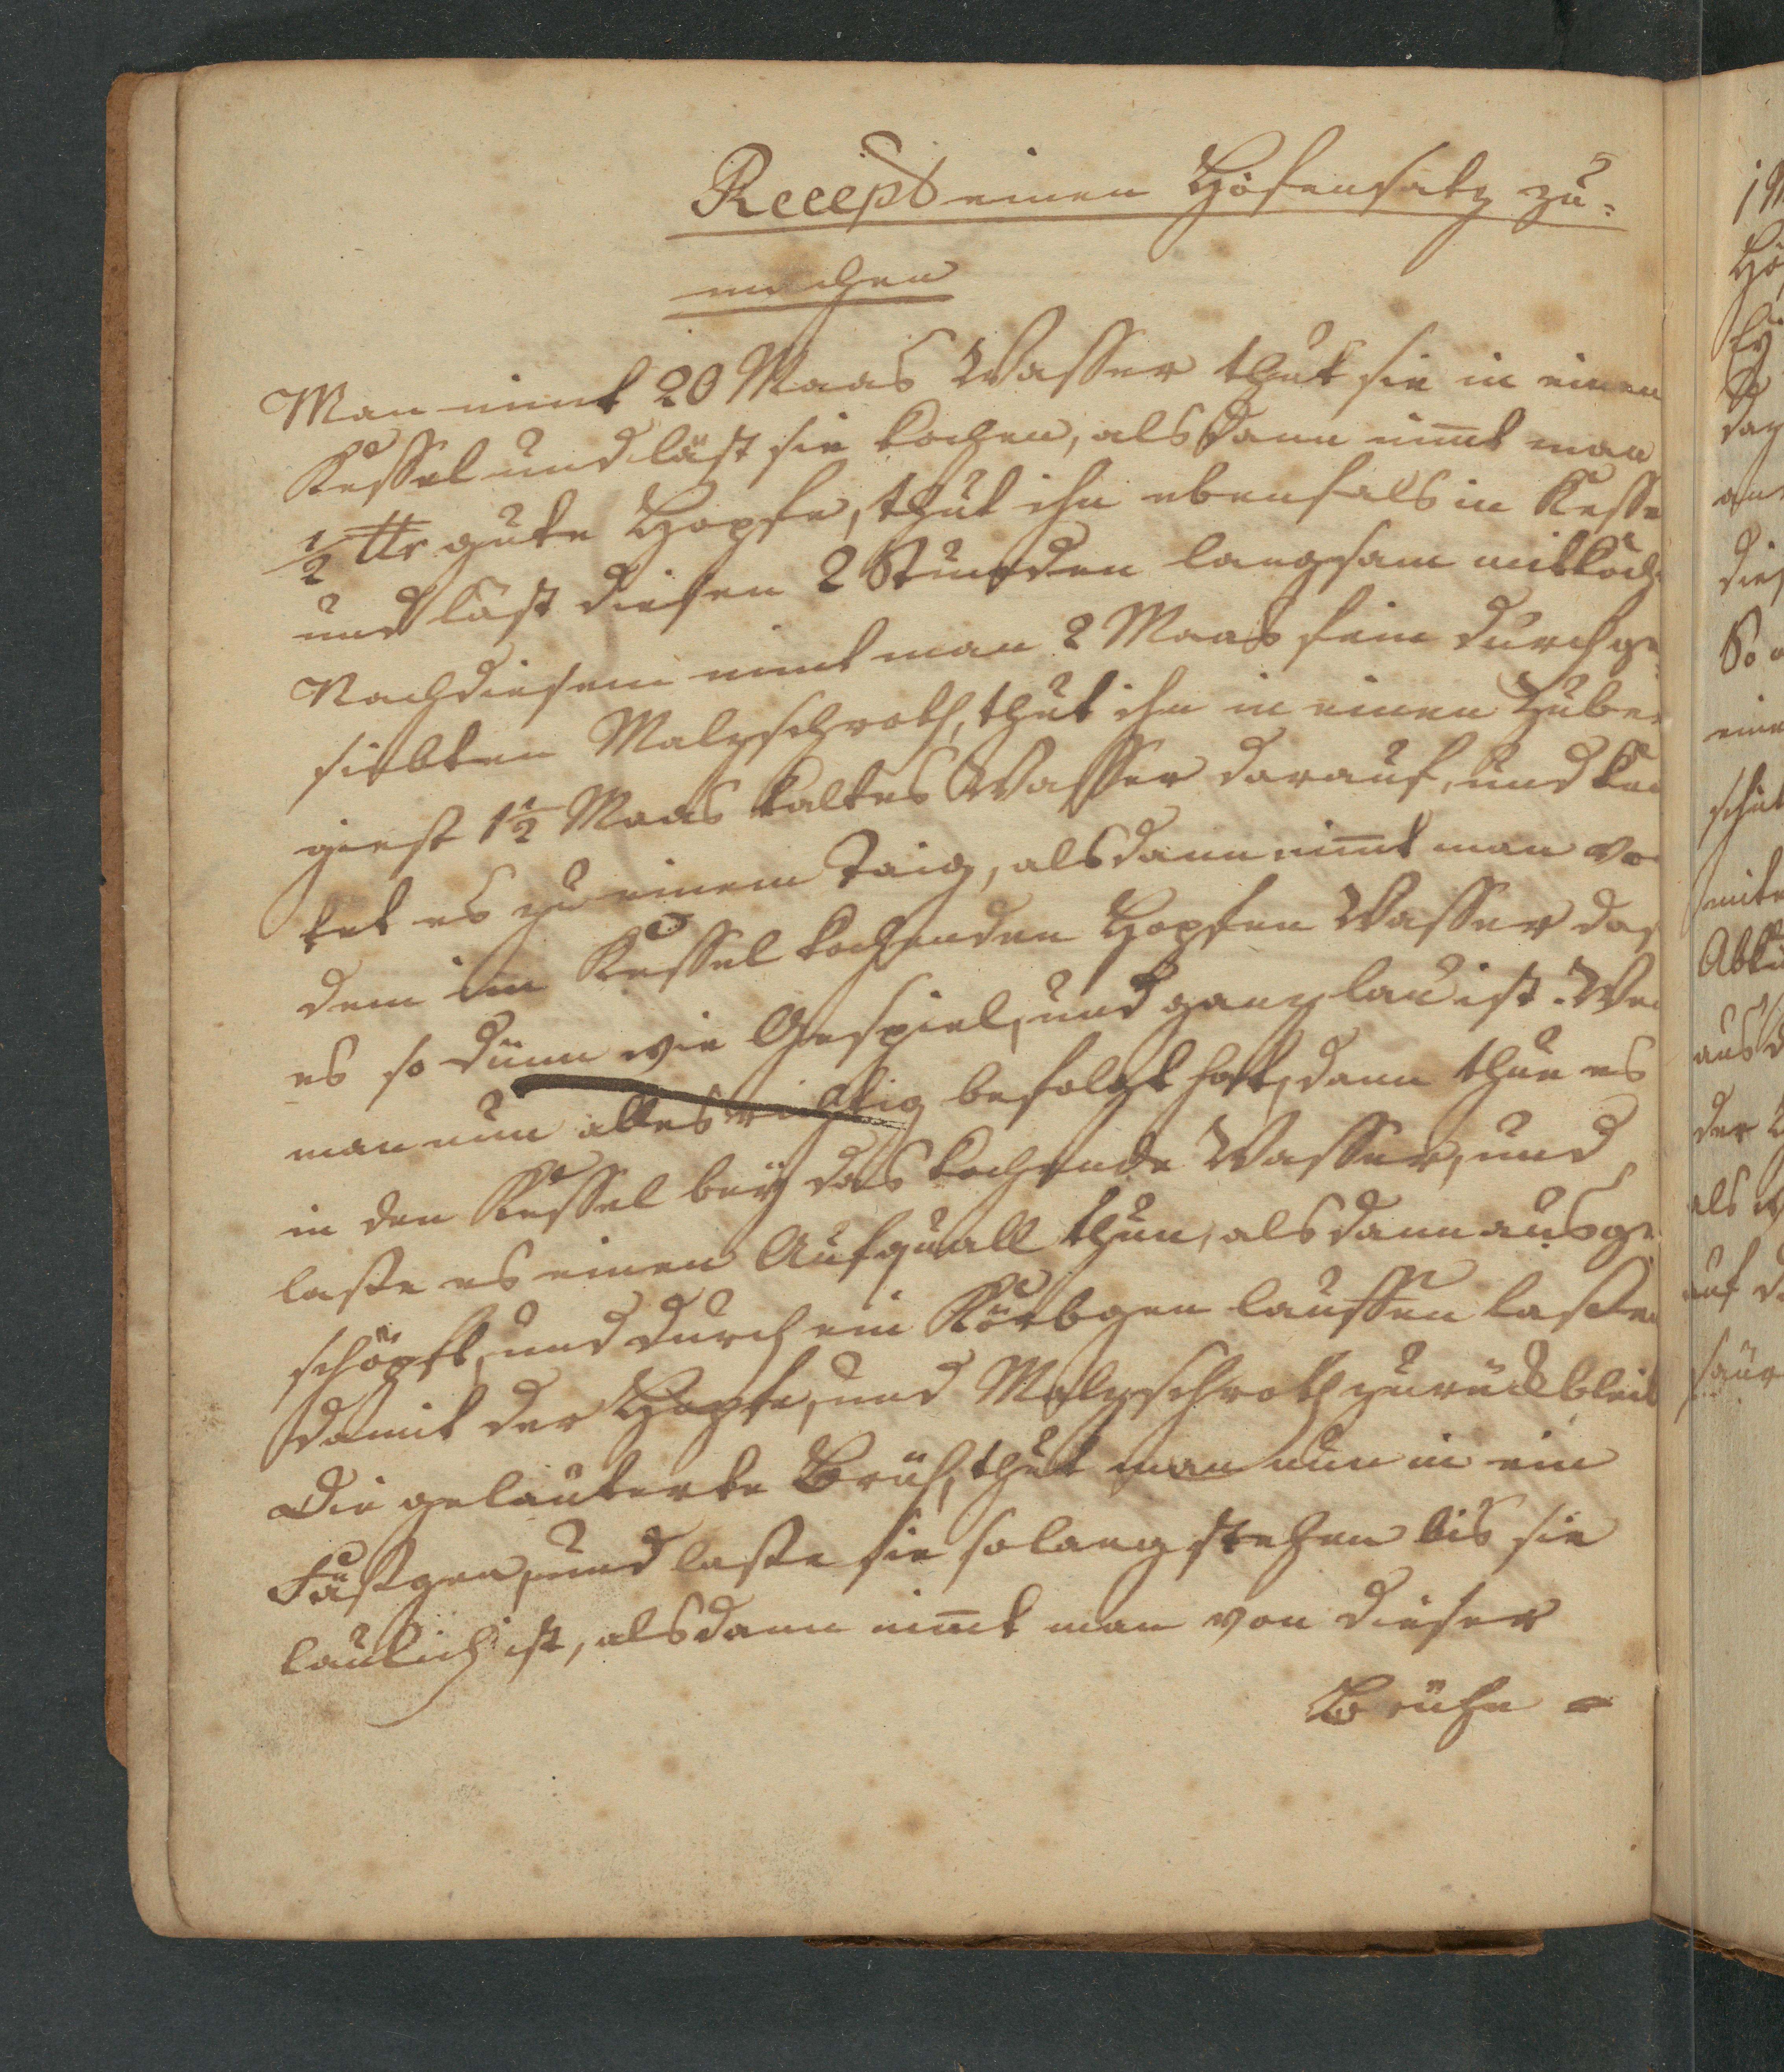 Recept einen Höfensatz zu=
machen
Man nimt 20 Maas Wasser thut sie in einen
Kessel und läst sie kochen, alsdann nim̄t man
1/2 ttr gute Hopfe, thut ihn ebenfals in Kesse
und läst diesen 2 Stunden langsam mitkoch
Nachdiesem nimt man 2 Maas fein durchge¬
siebten Malzschroth, thut ihn in einen Zuber
giest 1 1/2 Maas kaltes Wasser darauf, und kne
tet es zu einem Taig, alsdann nim̄t man vo
dem im Kessel kochenden Hopfen Wasser das
es so dünn wie Gespiel, und ganz lau ist. Wen
man nun alles richtig befolgt hat, dann thue es
in den Kessel beÿ das kochende Wasser, und
laße es einen Aufquall thun, alsdann ausge¬
schöpft, und durch ein Körbgen lauffen laßen
damit der Hopfe, und Malzschroth zurückbleib
Die geläuterte Brüh, thut man nun in ein
Fäßgen, und laße sie solang stehen bis sie
laulich ist, alsdann nim̄t man von dieser
Brühe =
1 M
Hö
Ey
das
an
dies
So
eine
schüt
mite
Abkü
aus d
der
als
auf d
säur